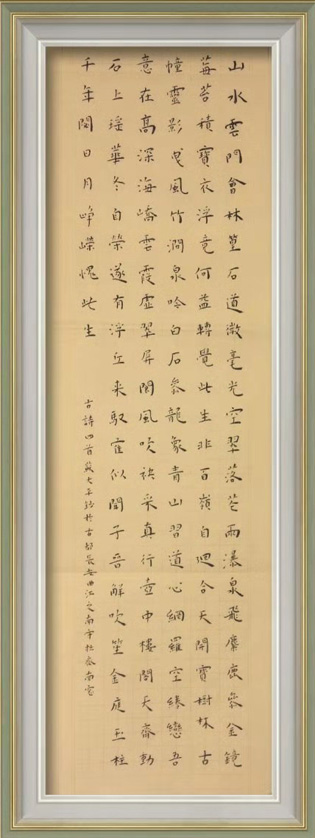 山水雲門會林篁石道微毫光空翠落花雨瀑泉飛麋鹿參金鏡
莓苔積寶衣浮竟何益轉覺此生非百嶺自迴合天開寶樹林古
幢靈影曳風竹澗泉吟白石參龍象青山習道心網羅空緣戀吾
意在高深海嶠雲霞虛翠屏閬風吹袂采真行壺中樓閣天齋動
石上瑤華冬自榮遂有浮丘來馭宦似聞子晉解吹笙金庭玉柱
千年閟日月崢嶸愧此生
古詩四首